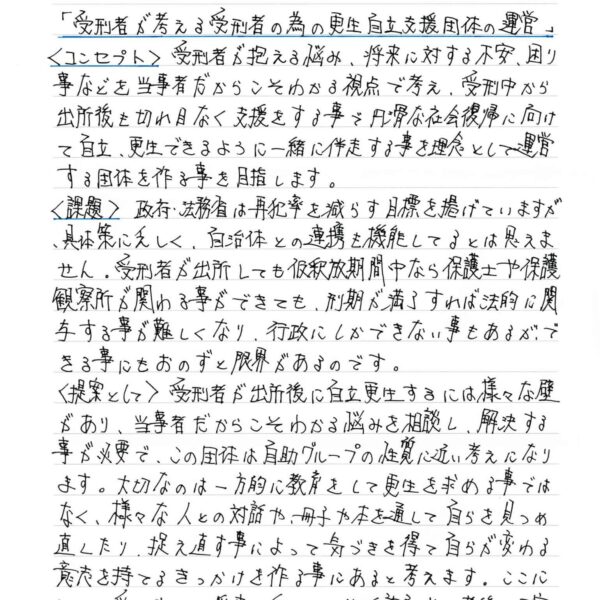 「受刑者が考える受刑者の為の更生自立支援団体の運営」
〈コンセプト〉受刑者が抱える悩み、将来に対する不安、困り
事などを当事者だからこそわかる視点で考え、受刑中から
出所後も切れ目なく支援をする事で円滑な社会復帰に向け
て自立、更生できるように一緒に伴走する事を理念として運営
する団体を作る事を目指します。
〈課題〉政府・法務省は再犯率を減らす目標を掲げていますが
、具体策に乏しく、自治体との連携も機能してるとは思えま
せん。受刑者が出所しても仮釈放期間中なら保護士や保護
観察所が関わる事ができても、刑期が満了すれば法的に関
与する事が難しくなり、行政にしかできない事もあるが、で
きる事にもおのずと限界があるのです。
〈提案として〉受刑者が出所後に自立更生するには様々な壁
があり、当事者だからこそわかる悩みを相談し、解決する
事が必要で、この団体は自助グループの性質に近い考えになり
ます。大切なのは一方的に教育をして更生を求める事では
なく、様々な人との対話や、冊子や本を通して自らを見つめ
直したり、捉え直す事によって気づきを得て自らが変わる
意志を持てるきっかけを作る事にあると考えます。ここに